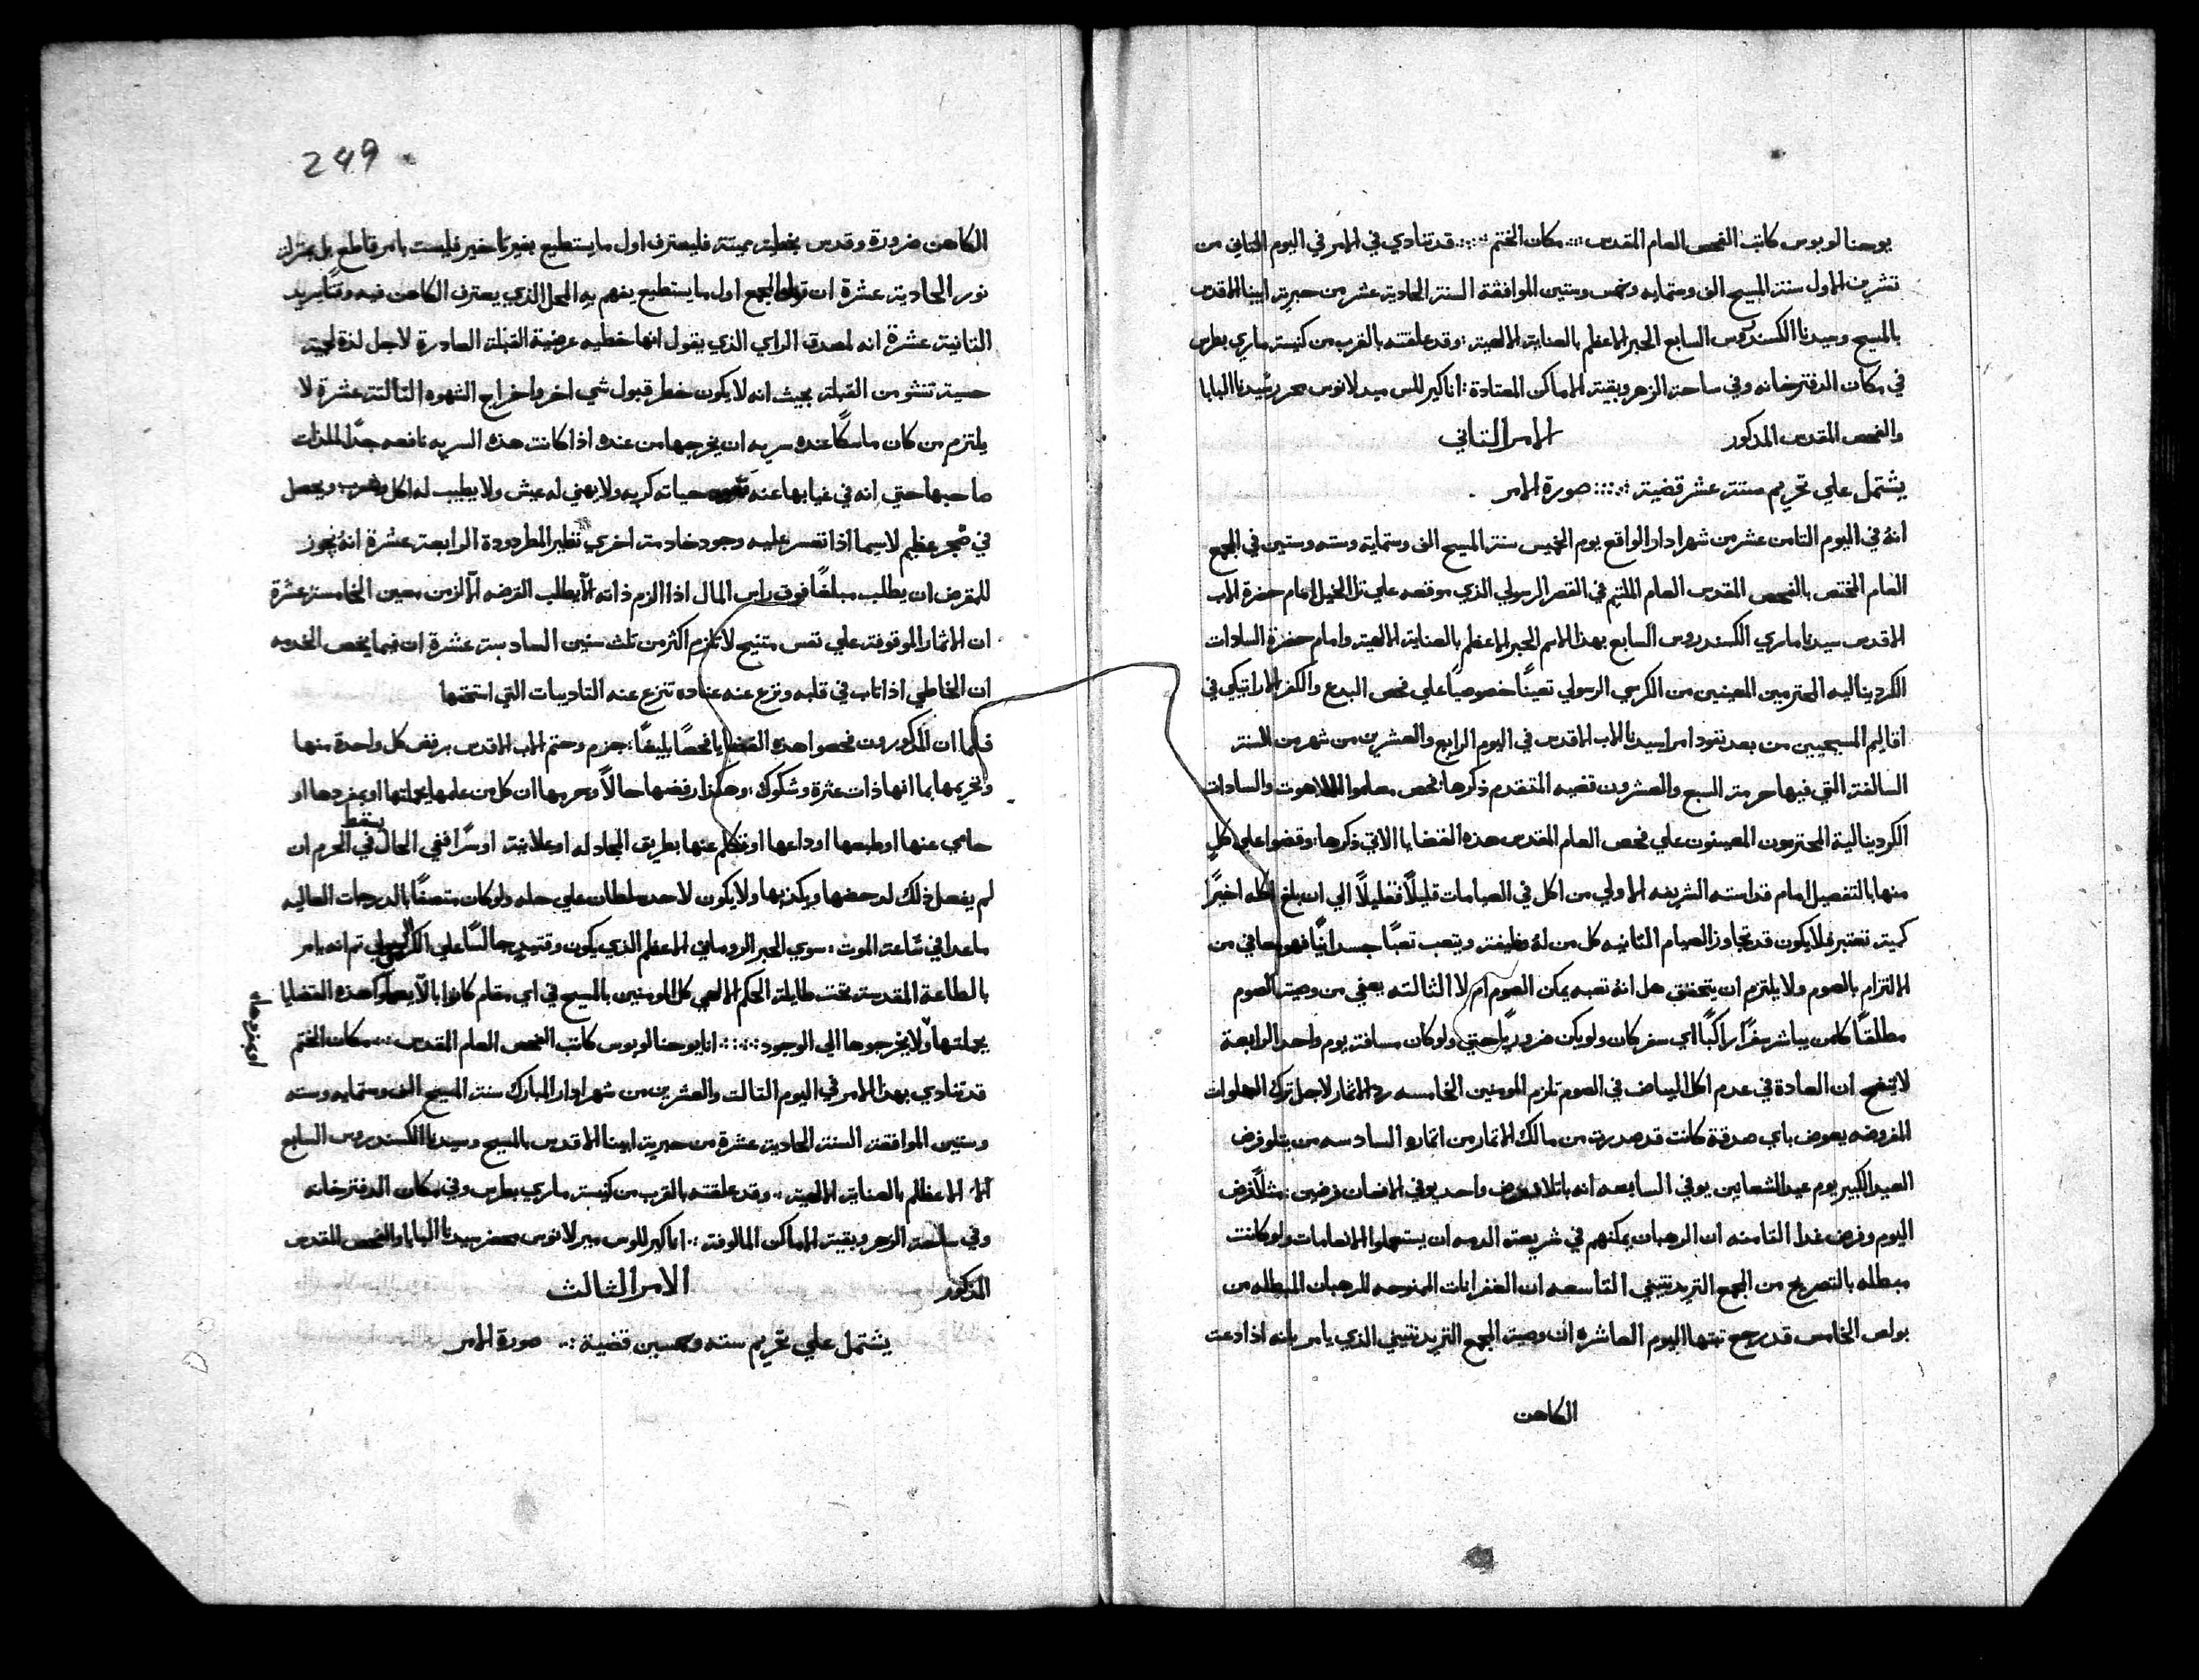 يوحنا لوبوس كاتب الفحص العام المقدس ∴ مكان الختم ∴ قد تنادي في الامر في اليوم الثاني من
تشرين الاول سنة المسيح الف وستمايه وخمس وستين الموافقة السنة الحادية عشر من حبرية ابينا الاقدس
بالمسيح وسيدنا الكسندروس السابع الحبر الاعظم بالعناية الالهية : وقد علقته بالقرب من كنيسة ماري بطرس
في مكان الدفترخانه وفي ساحة الزهر وبقية الاماكن المعتادة : انا كير للس ميدلانوس سيدنا البابا
والفحص المقدس المذكور الامر الثاني
يشتمل علي تحريم ستة عشر قضية ∴ صورة الامر
انهُ في اليوم الثامن عشر من شهر ادار الواقع يوم الخميس سنة المسيح الف وستماية وسته وستين في المجمع
العام المختص بالفحص المقدس العام الملتيم في القصر الرسولي الذي موقعه علي تل الخيل امام حضرة الاب
الاقدس سيدنا ماري الكسندروس السابع بهذا الاسم الحبر الاعظم بالعناية الالهية وامام حضرة السادات
الكرديناليه المحترمين المعينين من الكرسي الرسولي تعينًا خصوصيًا علي فحص البدع والكفر الاراتيكي في
اقاليم المسيحيين من بعد نفود امر سيدنا الاب الاقدس في اليوم الرابع والعشرين من شهر من السنة
السالفة التي فيها حرمت السبع والعشرون قضيه المتقدم ذكرها : فحص معلموا اللاهوت والسادات
الكردينالية المحترمون المعينون علي فحص العام المقدس هذه القضايا الاتي ذكرها : وقضوا علي كلٍ
منها بالتفصيل امام قداسته الشريفه الاولي من اكل في الصيامات قليلاً فقليلاً الي ان بلغ اكله اخيرًا
كمية تعتبر فلا يكون قد تجاوز الصيام الثانيه كل من لهُ وظيفة ويتعب تعبًا جسدانيًا فهو معافي من
الالتزام بالصوم ولا يلتزم ان يتحقق هل انهُ تعبه يمكن الصوم ام لا الثالثه يعفي من وصية الصوم
مطلقًا كلمن يباشر سفرًا راكبًا اي سفر كان ولو يكن ضروريًا حتي ولو كان مسافة يوم واحد الرابعة
لا يتضح ان العادة في عدم اكل البياض في الصوم تلزم المومنين الخامسه رد الاثمار لاجل ترك الصلوات
المفروضه يعوض باي صدقة كانت قد صدرت من مالك الاثمار من اثماره السادسه من يتلو فرض
العيد الكبير يوم عيد الشعانين يوفي السابعه انه بتلاوة فرض واحد يوفي الانسان فرضين : مثلاً فرض
اليوم وفرض غدا الثامنه ان الرهبان يمكنهم في شريعة الدمه ان يستعملوا الانعامات ولو كانت
مبطله بالتصريح من المجمع التريدنتيني التاسعه ان الغفرانات الممنوحه للرهبان المبطله من
بولص الخامس قد رجع اليوم العاشره ان وصية المجمع التريدنتيني الذي يامر بانه اذا دعت
الكاهن
249
الكاهن ضرورة وقدس بخطية مميتة فليعترف اول ما يستطيع بغير تاخير فليست بامر قاطع بل
نور الحادية عشرة ان اول ما يستطيع يفهم به المحل الذي يعترف الكاهن فيه وقتًا يريد
الثانية عشرة انه لمصدق الراي الذي يقول انها خطيه عرضية القبلة الصادرة لاجل لذة لحمية
حسية تنشو من القبلة بحيث انه لا يكون خطر قبول شي اخر واخراج الشهوه الثالثة عشرة لا
يلتزم من كان ماسكًا عنده سريه ان يخرجها من عنده اذا كانت هذه السريه نافعه جدًا للذات
صاحبها حتي انه في غيابها عنه حياته كريه ولا يهني له عيش ولا يطيب له اكل وشرب ويحصل
في ضجر عظيم لاسيما اذا تعسر عليه وجود خادمة اخري نظير المطرودة الرابعة عشرة انهُ يجوز
للمقرض ان يطلب مبلغًا فوق راس المال اذا الزم ذاته الا يطلب القرضه الا الزمن معين الخامسة عشرة
ان الاثمار الموقوفة علي نفس متنيح لا تلزم اكثر من ثلث سنين السادسة عشرة ان فيما يخص الخدمه
ان الخاطي اذا تاب في قلبه ونزع عنه عناده تنزع عنه التاديبات التي استحقها
فلما ان المذكورون فحصوا هذه القضايا فحصًا بليغًا : جزم وحتم الاب الاقدس برفض كل واحدة منها
وتحريمها بما انها ذات عثرة وشكوك : وهكذا رفضها حالاً وحرمها ان كل من علمها بجملتها او بمفردها او
حامي عنها او طبعها او داعها او تكلم عنها بطريق المجادله او علانية او سرًا ففي الحال يسقط في الحرم ان
لم يفعل ذلك لدحضها ويكذبها ولا يكون لاحد سلطان علي حله ولو كان متصفًا بالدرجات العاليه
ماعدا في ساعة الموت : سوي الحبر الروماني الاعظم الذي يكون وقتيدٍ جالسًا علي الكرسي الرسولي ثم انه يامر
بالطاعة المقدسة تحت طايلة الحكم الالهي كل المومنين بالمسيح في اي مقام كانوا بالا يعملوا هذه القضايا
بجملتها ولا يخرجوها الي الوجود ∴ انا يوحنا لوبوس كاتب الفحص العام المقدس ∴ مكان الختم
قد تنادي بهذا الامر في اليوم الثالث والعشرين من شهر ادار المبارك سنة المسيح الف وستمايه وسته
وستين الموافقة السنة الحادية عشرة من حبرية ابينا الاقدس بالمسيح وسيدنا الكسندروس السابع
الاعظم بالعناية الالهية .. وقد علقته بالقرب من كنيسة ماري بطرس وفي مكان الدفترخانه
وفي ساحة الزهر وبقية الاماكن المالوفة .. انا كير للوس ميرلانوس محضر سيدنا البابا والفحص المقدس
المذكور الامر الثالث
يشتمل علي تحريم سته وخمسين قضية .. صورة الامر